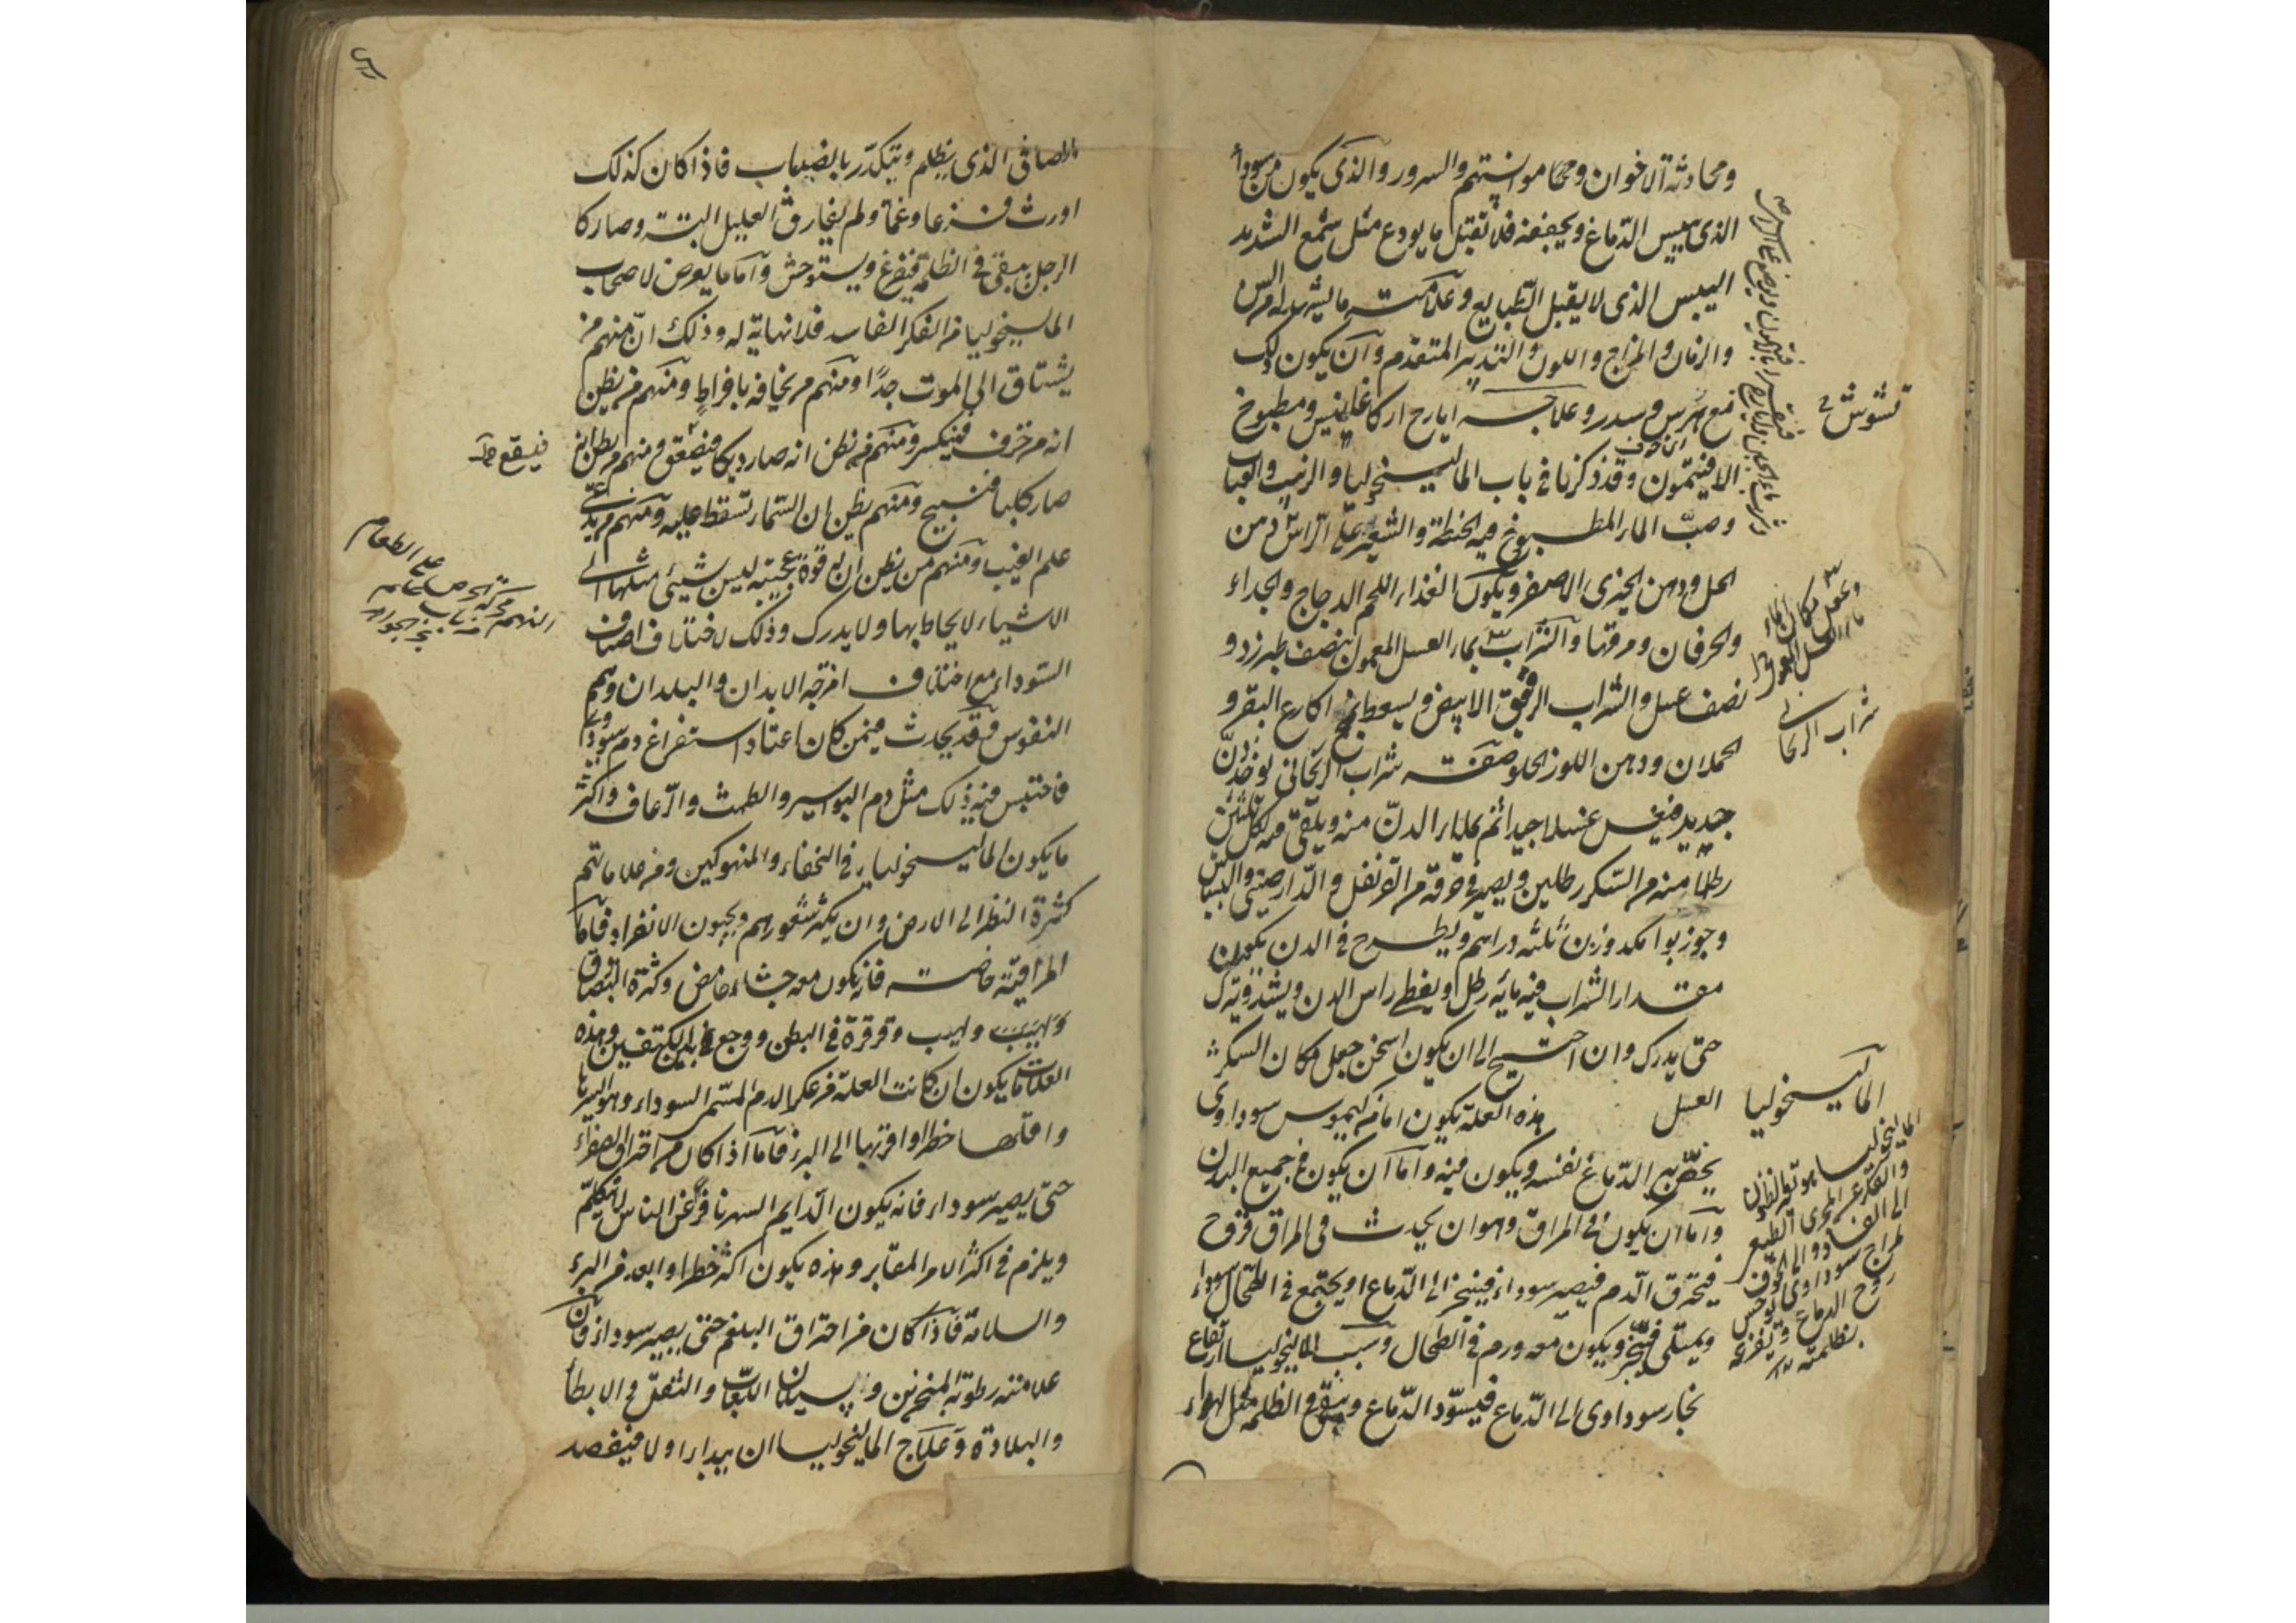 ومحادثة الاخوان ومحكا موانستهم والسرور والذي يكون من سوداء
الذي ييبس الدماغ ويجففه فلا تقبل ما يودع مثل شمع الشديد
اليبس الذي لا يقبل الطبايع وعلامته
والزمان والمزاج واللون والتدبير المتقدم وان يكون ذلك
مع وسدر وعلاجه ايارج اركاغانيس ومطبوخ
الافيتمون وقد ذكرنا في باب الماليخوليا والزبيب والعناب
وصب الماء المطبوخ فيه الحنطة والشعير على الراس دهن
الحل ودهن الخيري الاصفر ويكون الغذاء اللحم الدجاج والجداء
والخرفان ومرقها والشراب بماء العسل المعمول بنصف طبرزد و
نصف عسل والشراب الرقيق الابيض ويسعط بمخ اكارع البقر و
الحملان ودهن اللوز الحلو صفة شراب الريحاني يوخذ دن
جديد فيغسل غسلا جيدا ثم يملأ الدن منه ويلقى فيه لكل ثلثين
رطلا منه من السكر رطلين ويصير في خرقة من القرنفل والدارصيني والبسباس
وجوز بوا من كل واحد وزن ثلثه دراهم ويطرح في الدن يكون
مقدار الشراب فيه مايه رطل ويغطى راس الدن ويشد ويترك
حتى يدرك وان احتيج الى ان يكون اسخن جعل مكان السكر
العسل هذه العلة يكون اما من كيموس سوداوى
يخص به الدماغ نفسه ويكون فيه واما ان يكون في جميع البدن
واما ان يكون في المراق وهو ان يحدث في المراق
فيحترق الدم فيصير سوداء فيبخر الى الدماغ او يجتمع في الطحال سوداء
ويمتلى فيبخر ويكون معه ورم في الطحال وسبب الماليخوليا ارتفاع
بخار سوداوى الى الدماغ فيسود الدماغ ويبقى في الظلمة مثل الهواء
تشوش
شراب الريحاني
الماليخوليا
الصافى الذى يظلم ويتكدر بالضباب فاذا كان كذلك
اورث فزعا وغما ولم يفارق العليل البتة وصار كا
الرجل يبقى في الظلمة فيفزع ويستوحش واما ما يعرض لاصحاب
الماليخوليا من الفكر الفاسد فلا نهاية له وذلك ان منهم من
يشتاق الى الموت جدا ومنهم من يخافه بافراط ومنهم من يظن
انه من خزف فينكسر ومنهم من يظن انه صار ديكا فيصعق ومنهم من يظن انه
صار كلبا فينبح ومنهم يظن ان السماء تسقط عليه ومنهم من يدعى
علم الغيب ومنهم من يظن ان له قوة عجيبة ليس شيئ مثلها الى
الاشياء لا يحاط بها ولا يدرك وذلك لاختلاف اصناف
السوداء مع اختلاف امزجة الابدان والبلدان وهمم
النفوس فقد يحدث فيمن كان اعتاد استفراغ دم سوداوى
فاحتبس منه ذلك مثل دم البواسير والطمث والرعاف واكثر
ما يكون الماليخوليا في النحفاء والمنهوكين ومن علاماتهم
كثرة النظر الى الارض وان يكثر شعورهم ويحبون الانفراد فاما
المراقية خاصة فانه يكون معه جشاء حامض وكثرة البصاق
ولهيب وقرقرة في البطن ووجع في بين الكتفين وهذه
العلامات يكون ان كانت العلة من عكر الدم المسمى السوداء وهو ايسرها
واقلها خطرا واقربها الى البرء فاما اذا كان من احتراق الصفراء
حتى يصير سوداء فانه يكون الدايم السهر نافر عن الناس لا يتكلم
ويلزم في اكثر الامر المقابر وهذه يكون اكثر خطرا وابعد من البرء
والسلامة فاذا كان من احتراق البلغم حتى يصير سوداء فان
علامته رطوبة المنخرين وسيلان اللعاب والثقل والابطاء
والبلادة وعلاج الماليخوليا ان يبدا اولا فيفصد